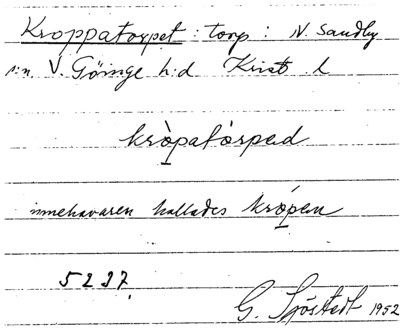 Kroppatorpet : torp : N. Sandby
s:n V. Göinge h:d Krist. l
kròpatòrped
innehavaren kallades krópen
5237
G. Sjöstedt 1952